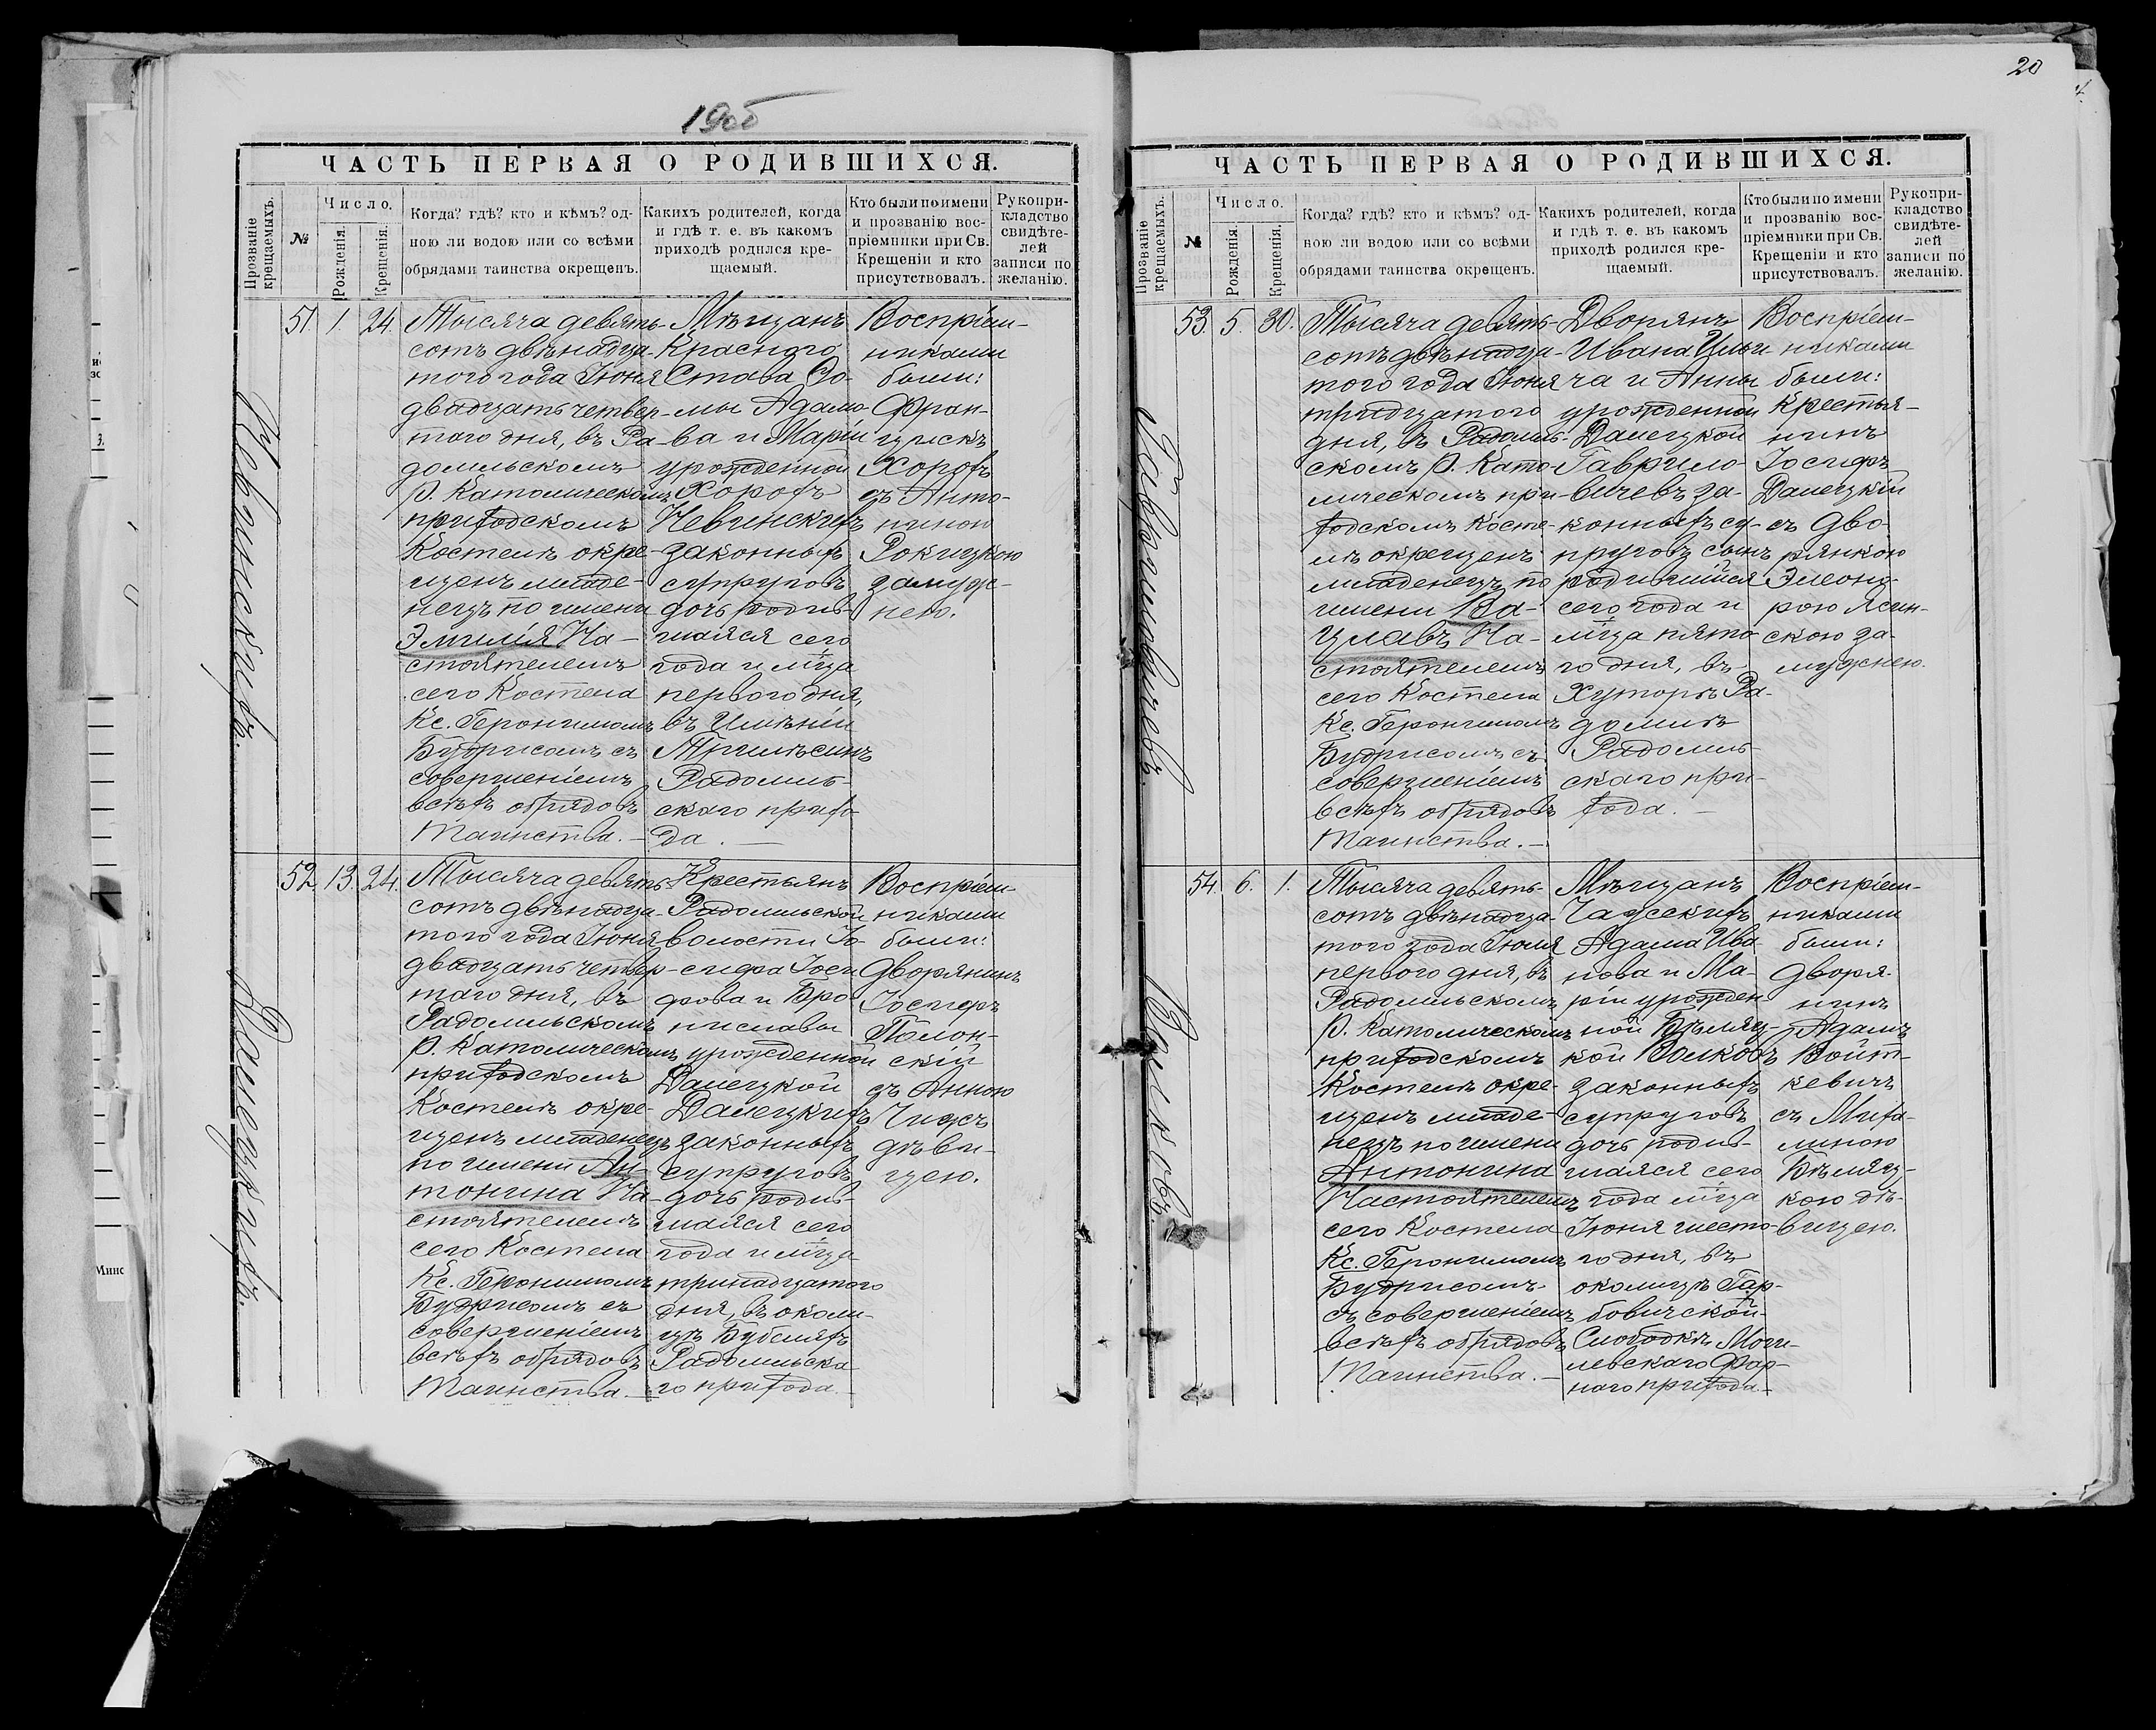 19об
ЧАСТЬ ПЕРВАЯ О РОДИВШИХСЯ.
Прозваніе крещаемыхъ.
№
Число.
Рожденія.
Крещенія.
Когда? гдѣ? кто и кѣмъ? од-
ною ли водою или со всѣми
обрядами таинства окрещенъ.
Какихъ родителей, когда
и гдѣ т. е. въ какомъ
приходѣ родился кре-
щаемый.
Кто были по имени
и прозванію вос-
пріемники при Св.
Крещеніи и кто
присутствовалъ.
Рукопри-
кладство
свидѣте-
лей
записи по
желанію.
Невинскихъ.
51. 1. 24.
Тысяча девять-
сотъ двѣнадца-
того года Іюня
двадцать четвер-
таго дня, въ Ра-
домльскомъ
р. Католическомъ
приходскомъ
Костелѣ окре-
щенъ младе-
нецъ по имени
Эмилія На-
стоятелемъ
сего Костела
Кс. Геронимомъ
Будрисомъ съ
совершеніемъ
всѣхъ обрядовъ
Таинства. —
Мѣщанъ
Красного
Става Ѳо-
мы Адамо-
ва и Маріи
урожденной
Хоротъ
Невинскихъ
законныхъ
супруговъ
дочь родив-
шаяся сего
года и м-ца
перваго дня,
въ Имѣніи
Радомль-
скаго прихо-
да. —
Воспріем-
никами
были:
Фран-
цискъ
Хоротъ
съ Анто-
ниною
Рокицкою
замуж-
нею.
Далецкихъ.
52. 13. 24.
Тысяча девять-
сотъ двѣнадца-
того года Іюня
двадцать четвер-
таго дня, въ
Радомльскомъ
р. Католическомъ
приходскомъ
Костелѣ окре-
щенъ младенецъ
по имени Ан-
тонина На-
стоятелемъ
сего Костела
Кс. Геронимомъ
Будрисомъ съ
совершеніемъ
всѣхъ обрядовъ
Таинства. —
Крестьянъ
Радомльской
волости Іо-
сифа Іоси-
фова и Бро-
ниславы
урожденной
Далецкой
Далецкихъ
законныхъ
супруговъ
дочь родив-
шаяся сего
года и м-ца
тринадцатого
дня, въ околи-
цѣ
Радомльска-
го прихода. —
Воспріем-
никами
были:
Дворянинъ
Іосифъ
Полон-
скій
съ Анною
Чижъ
дѣви-
цею.
20
ЧАСТЬ ПЕРВАЯ О РОДИВШИХСЯ.
Прозваніе крещаемыхъ.
№
Число.
Рожденія.
Крещенія.
Когда? гдѣ? кто и кѣмъ? од-
ною ли водою или со всѣми
обрядами таинства окрещенъ.
Какихъ родителей, когда
и гдѣ т. е. въ какомъ
приходѣ родился кре-
щаемый.
Кто были по имени
и прозванію вос-
пріемники при Св.
Крещеніи и кто
присутствовалъ.
Рукопри-
кладство
свидѣте-
лей
записи по
желанію.
Гавриловичевъ.
53. 5. 30.
Тысяча девять-
сотъ двѣнадца-
того года Іюня
тридцатого
дня, въ Радомль-
скомъ р. Като-
лическомъ при-
ходскомъ Косте-
лѣ окрещенъ
младенецъ по
имени Ва-
цлавъ На-
стоятелемъ
сего Костела
Кс. Геронимомъ
Будрисомъ съ
совершеніемъ
всѣхъ обрядовъ
Таинства. —
Дворянъ
Ивана Ильи-
ча и Анны
урожденной
Далецкой
Гаврило-
вичевъ за-
конныхъ су-
пруговъ сынъ
родившійся
сего года и
м-ца пято-
го дня, въ
Хуторѣ Ра-
домлѣ
Радомль-
скаго при-
хода. —
Воспріем-
никами
были:
Крестья-
нинъ
Іосифъ
Далецкій
съ дво-
рянкою
Элеоно-
рою Ясин-
скою за-
мужнею.
Волковъ.
54. 6. 1.
Тысяча девять-
сотъ двѣнадца-
того года Іюля
перваго дня, въ
Радомльскомъ
р. Католическомъ
приходскомъ
Костелѣ окре-
щенъ младе-
нецъ по имени
Антонина
Настоятелемъ
сего Костела
Кс. Геронимомъ
Будрисомъ
съ совершеніемъ
всѣхъ обрядовъ
Таинства. —
Мѣщанъ
Чаусскихъ
Адама Ива-
нова и Ма-
ріи урожден-
ной Бѣляц-
кой Волковъ
законныхъ
супруговъ
дочь родив-
шаяся сего
года м-ца
Іюня шесто-
го дня, въ
околицѣ Гар-
бовичской
Слободкѣ Моги-
левскаго Фар-
наго прихода. —
Воспріем-
никами
были:
Дворя-
нинъ
Адамъ
Войт-
кевичъ
съ Миха-
линою
Бѣляц-
кою дѣ-
вицею.